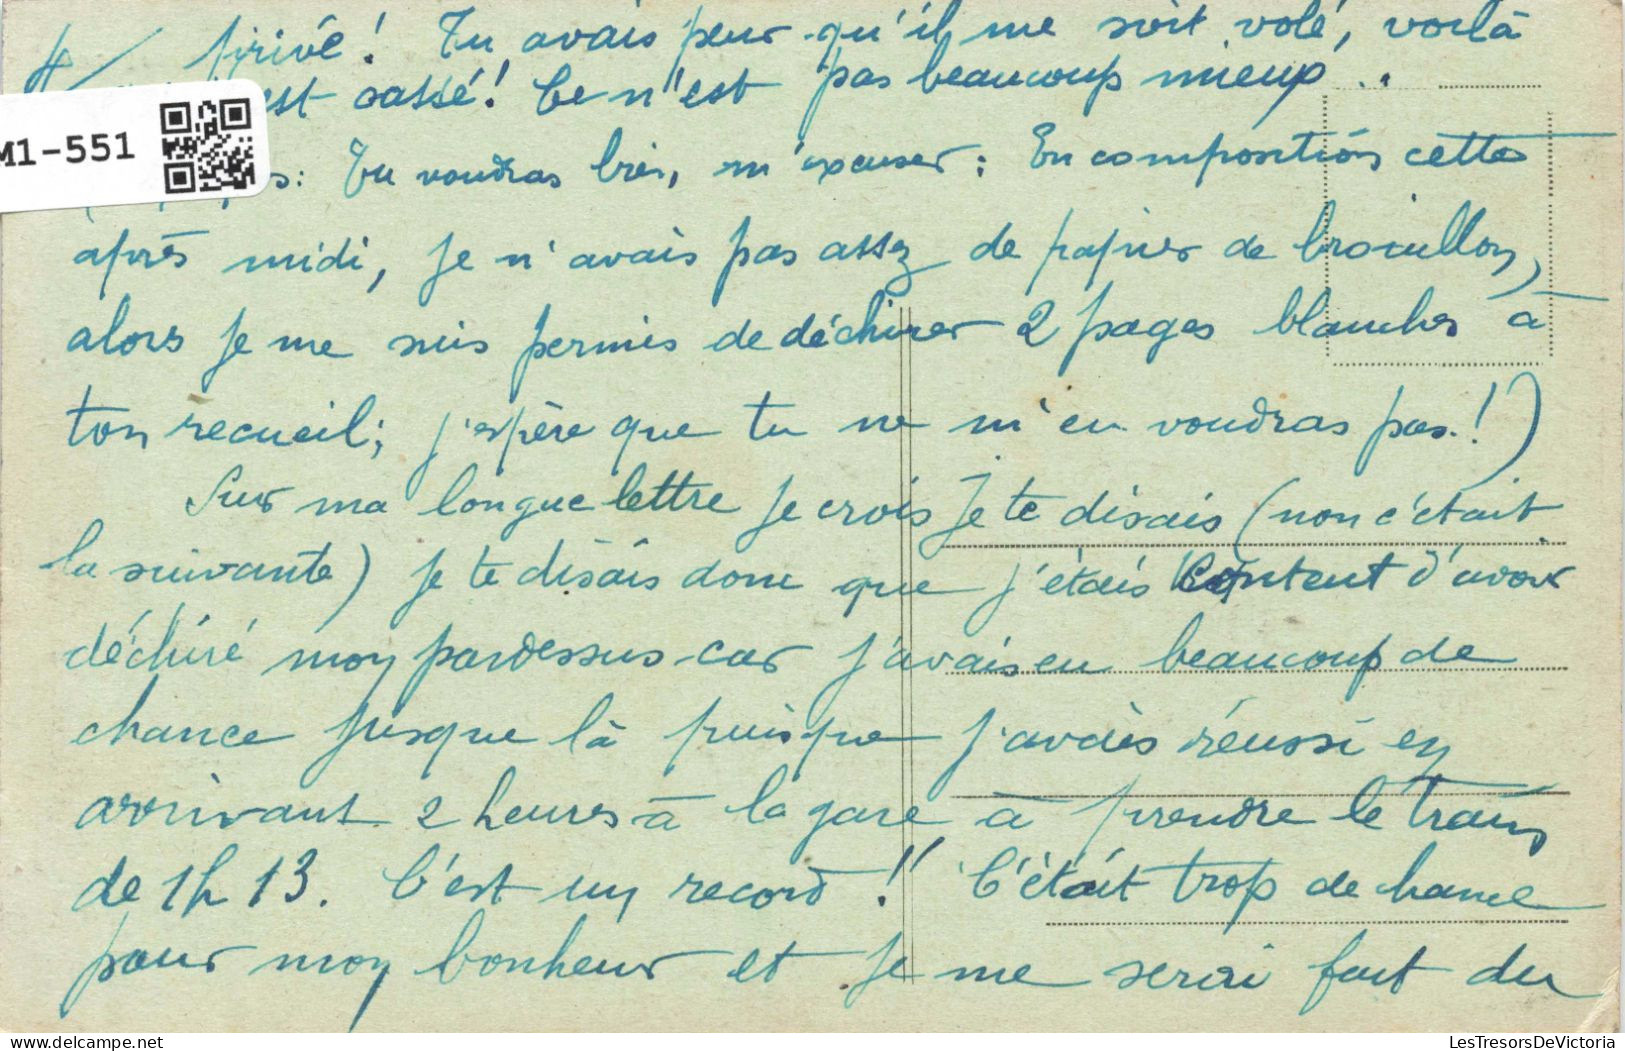 4/ privé! Tu avais peur qu'il me soit volé, voilà
est cassé! Ce n'est pas beaucoup mieux ..
M1-551
s: Tu voudras bien, m'excuser: En composition cette
après midi, je n'avais pas assez de papier de brouillon,
alors je me suis permis de déchirer 2 pages blanches à
ton recueil; j'espère que tu ne m'en voudras pas!)
Sur ma longue lettre je crois je te disais (non c'était
la suivante) je te disais donc que j'étais content d'avoir
déchiré mon pardessus car j'avais eu beaucoup de
chance jusque là puisque j'avais réussi en
arrivant 2 heures à la gare à prendre le train
de 1h 13. C'est un record!! C'était trop de chance
pour mon bonheur et je me serai fait du
LesTresorsDeVictoria